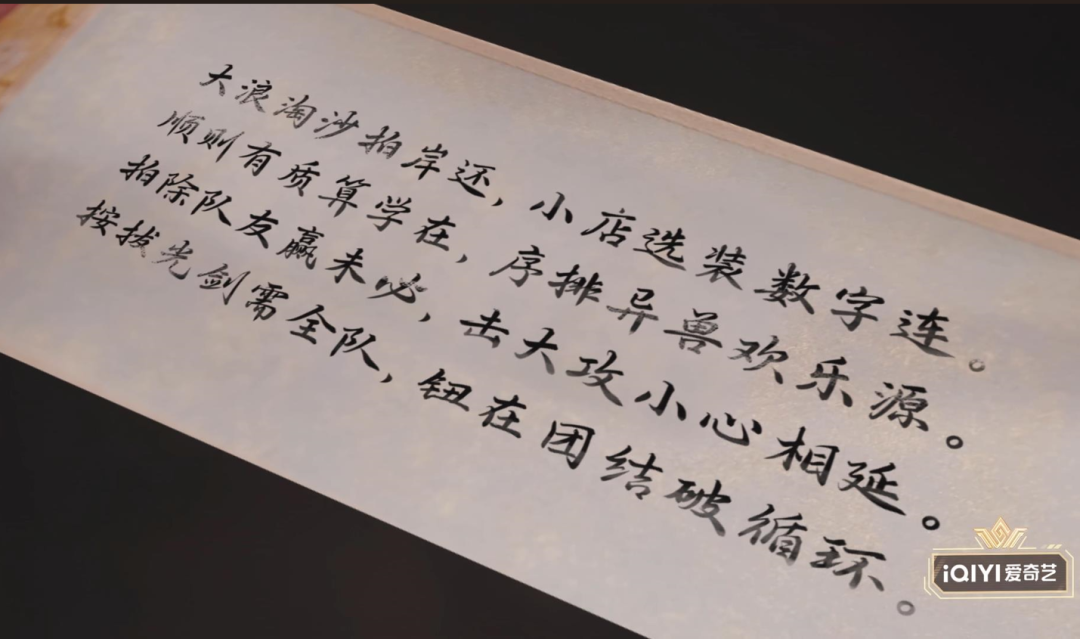 大浪淘沙拍岸还，小店选装数字连。
顺则有质算学在，序排异兽欢乐源。
拍除队友赢未必，击大攻小心相延。
按拔光剑需全队，钮在团结破循环。
iQIYI爱奇艺